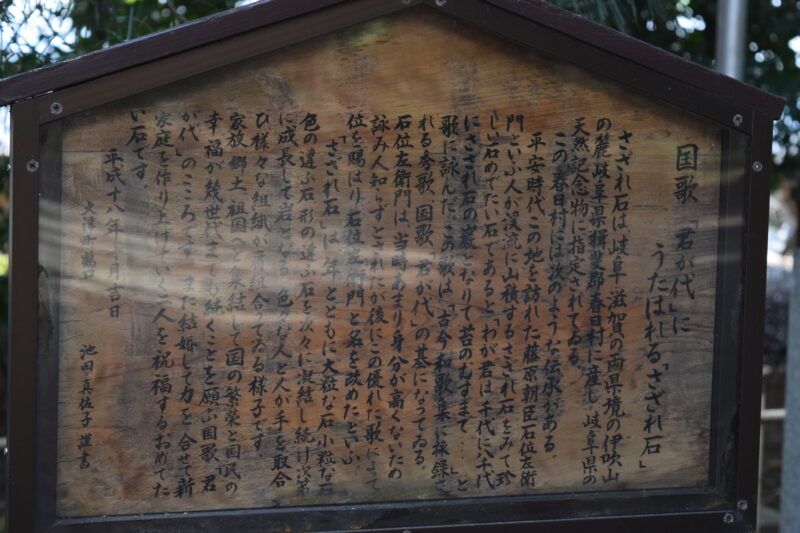 国歌「君が代」に
うたはれる「さざれ石」
さざれ石は岐阜、滋賀の両県境の伊吹山
の麓岐阜県揖斐郡春日村に産し岐阜県の
天然記念物に指定されてゐる。
この春日村には次のような伝承がある
平安時代この地を訪れた藤原朝臣石位左衛
門といふ人が渓流に山積するさざれ石をみて珍
しい石めでたい石であると「わが君は千代に八千代
にさざれ石の巌となりて苔のむすまで…」と
歌に詠んだこの歌は「古今和歌集」に採録
れる秀歌、国歌「君が代」の基になってゐる。
石位左衛門は、当時あまり身分が高くないため
詠み人知らずとされたが後にこの優れた歌によって
位を賜はり石位左衛門と名を改めたといふ
「さざれ石」は、年とともに大粒な石小粒な石
色の違ふ石形の違ふ石を次々に凝結し続け次第
に成長して岩となる、色々な人と人が手を取合
ひ様々な組織が肩組合ってゐる様子です
家族、郷土、祖国へと集結して国の繁栄と国民の
幸福が幾世代までも続くことを願ふ国歌「君
が代」のこころです。また結婚して力を合せて新
家庭を作り上げていく二人を祝福するおめでた
い石です。
平成十八年 月吉日
大津町
池田真佐子 謹書